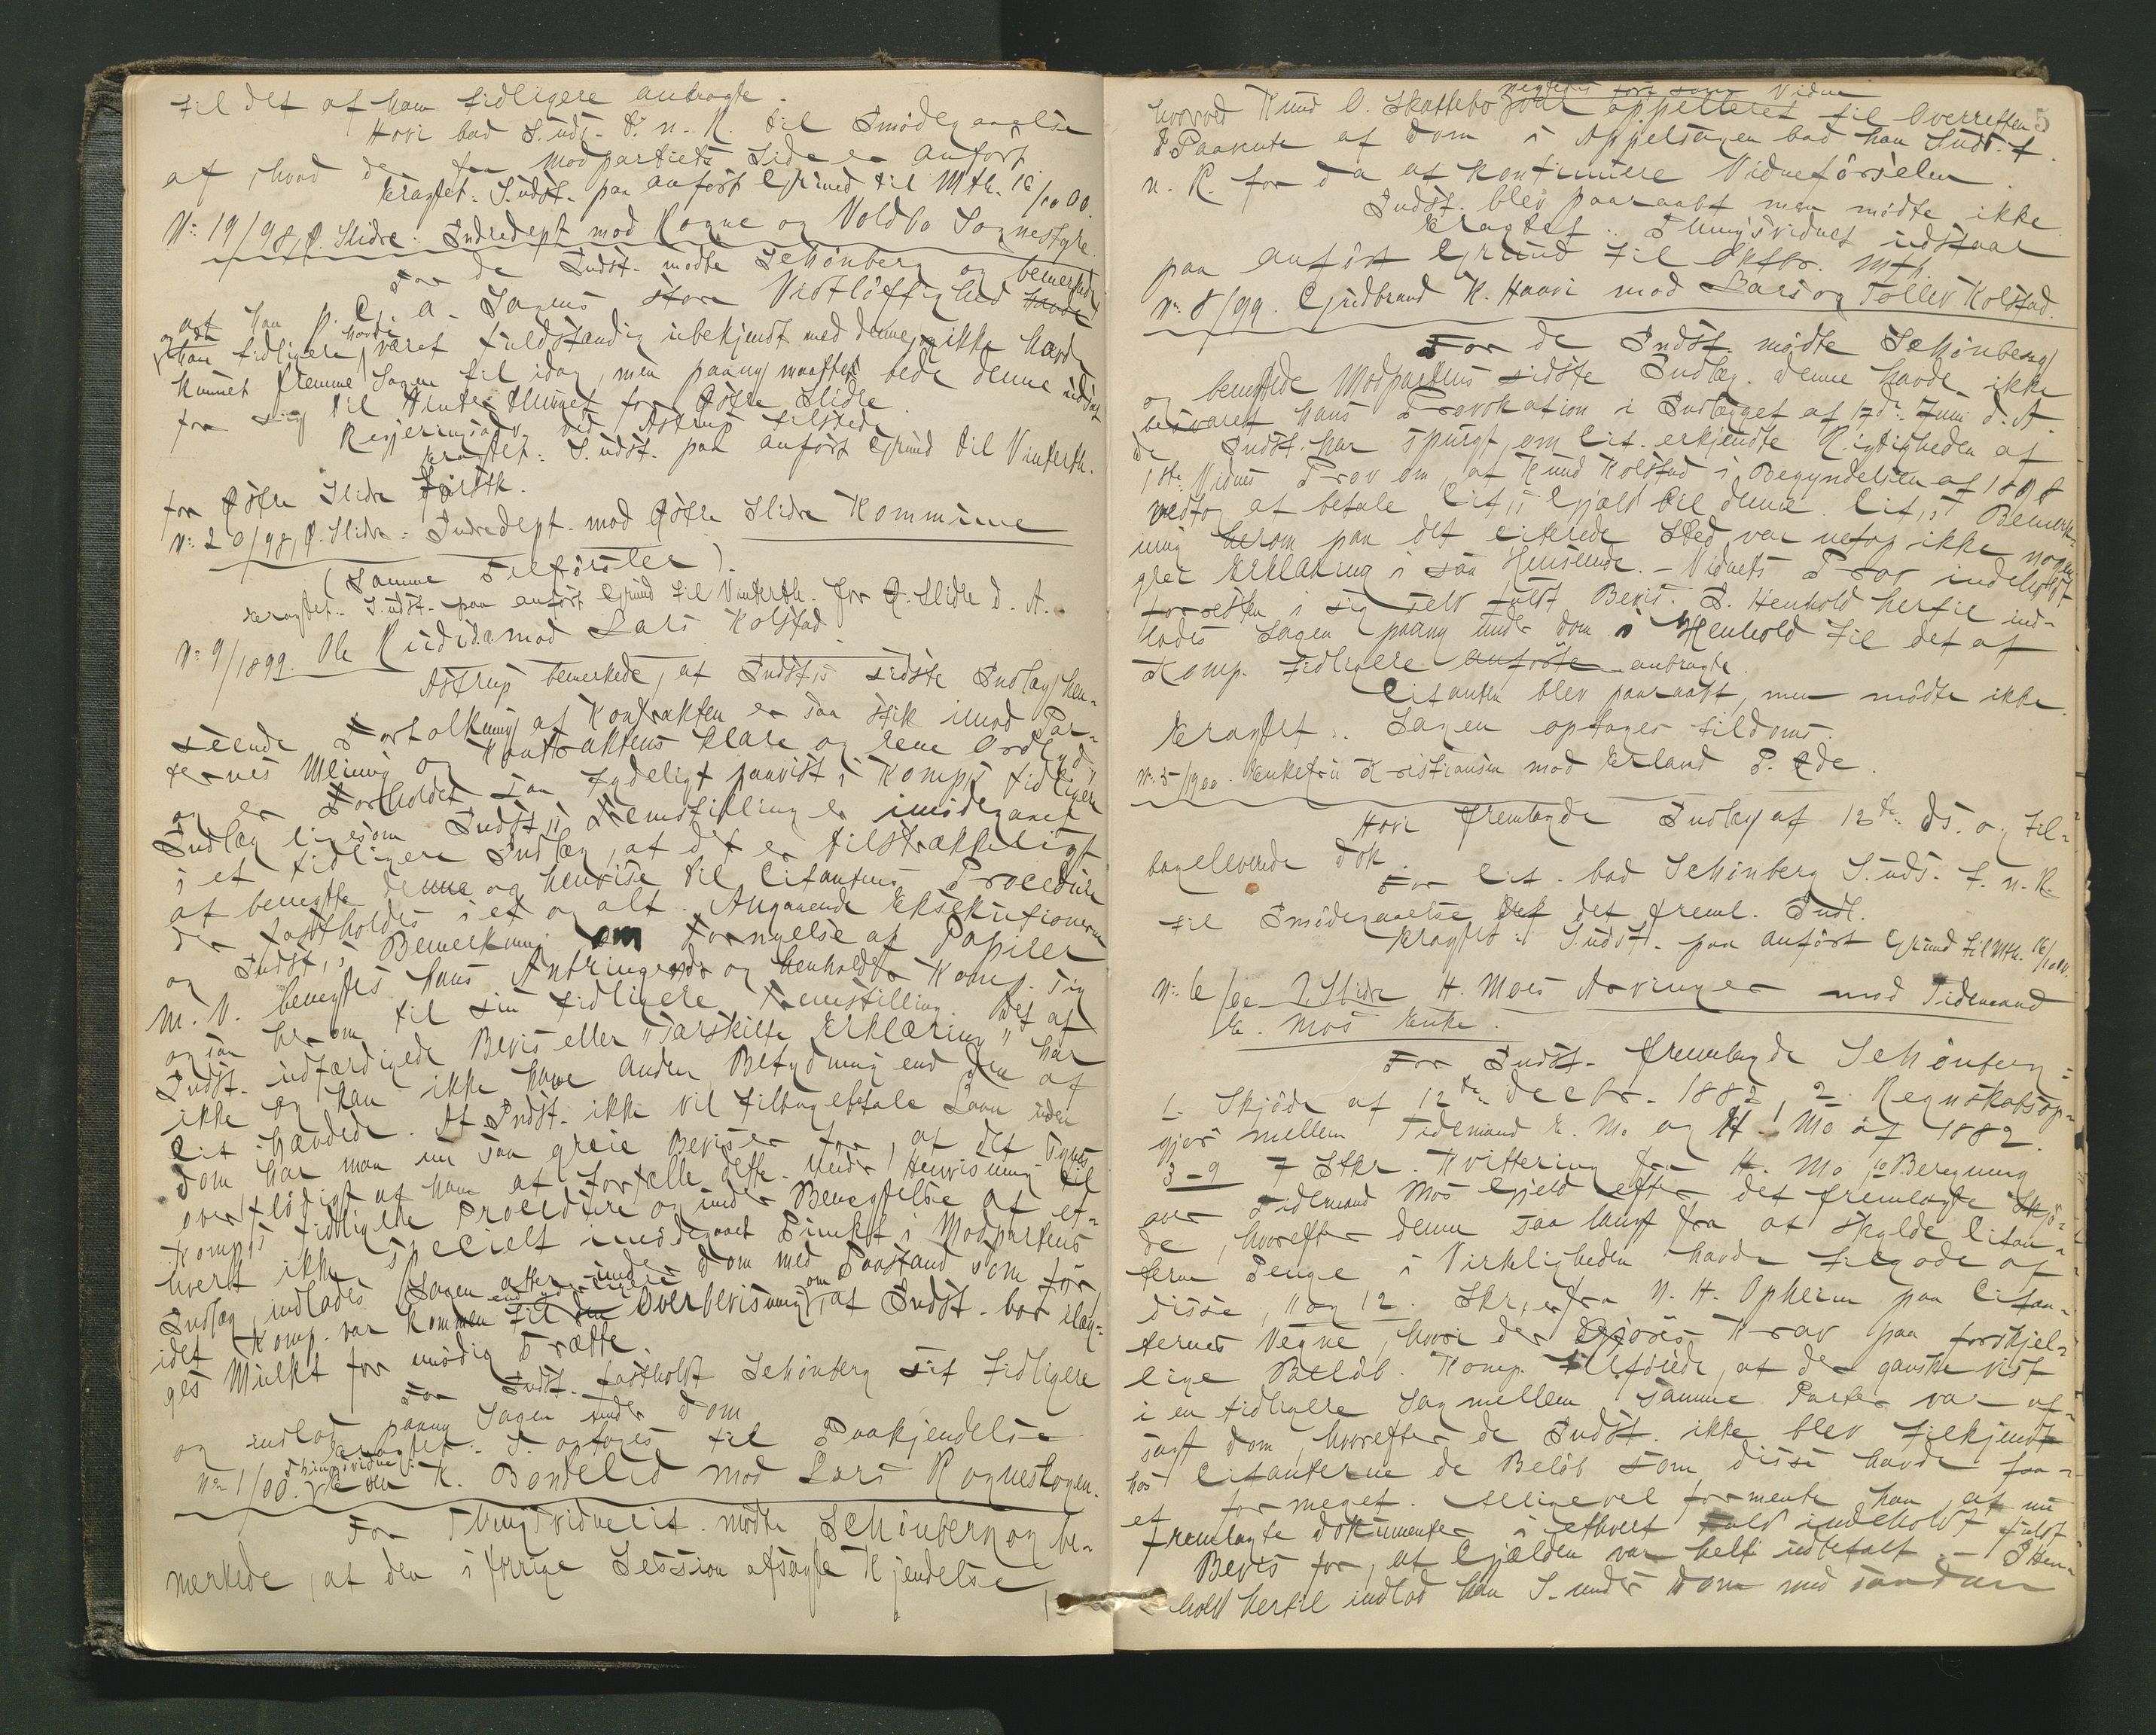 til det af ham tidligere anbragte.
Hovi bad S. uds. t. n. R. til Imødegaaelse
af hvad der fra Modpartiets Side er anført.
Eragtet: S. udst. paa anført Grund til Mth. 16/10 00.
No 19/98, Ø. Slidre: Indredept mod Rogne og Volbo Sognestyre
For de Indst. mødte Schönberg og bemerkede
at han p. G. a. Sagens store Vidtløftighed havde
og da han tidligere havde været fuldstændig ubekjendt med denne, ikke havde
kunnet fremme Sagen til idag, men paany maatte bede denne udsat
for sig til Vinterthinget for Østre Slidre.
Regjeringsadv. ved Astrup tilstede
Eragtet: S. udst. paa anført Grund til Vinterth.
for Østre Slidre Førstk.
No 20/98, Ø. Slidre: Indredept. mod Østre Slidre Kommune
(Samme Tilførsler).
Eragtet: S. udst. paa anført Grund til Vinterth. for Ø. Slidre d. A.
No 9/1899. Ole mod Lars Kolstad
Astrup bemerkede, at Indst,s sidste Indlæg hen-
seende Fortolkning af Kontrakten er saa stik imod Par-
ternes Mening og Kontraktens klare og rene Ordlyd,
og er Forholdet saa tydeligt paavist i Komp,s tidligere
Indlæg ligesom Indst,s Fremstilling er imødegaaet
i et tidligere Indlæg, at det er tilstrækkeligt
at benegte denne og henvise til Citantens Procedure
der fastholdes i et og alt. Angaaende Eksekutionen
og Indst,s Bemerkning om Fornyelse af Papirer
m. V. benegtes hans Anbringende og henholder Komp. sig
ogsaa herom til sin tidligere Fremstilling. Det af
Indst. udfærdigede Bevis eller "særskilte Erklæring" har
ikke og kan ikke have anden Betydning end den af
Cit. hævdede. At Indst. ikke vil tilbagebetale Laan uden
Dom har man nu saa greie Beviser for, at det synes
overflødigt af ham at fortælle dette. Under Henvisning til
Komp,s tidligere Procedure og under Benegtelse af et-
hvert ikke specielt imødegaaet Punkt i Modpartens
Indlæg indlades Sagen atter under Dom med Paastand som før
idet Komp. var kommen til Overbevisning om, at Indst. bør ilæg-
ges Mulkt for unødig Trætte.
For Indst. fastholdt Schönberg sit tidligere
og indlod paany Sagen under Dom
Eragtet: S. optages til Paakjendelse
No 1/00. Thingsvidne: K. Bøndelid mod Lars Rogneskogen.
For Thingsvidnecit. mødte Schönberg og be-
merkede, at den i forrige Session afsagte Kjendelse
5
hvorved Knud O. Skattebo negtedes ført som Vidne var appelleret til Overretten
I Paavente af Dom i Appelsagen bad han Sudst. t.
n. R. for da at kontinuere Vidneførselen.
Indst. blev paaraabt men mødte ikke
Eragtet: Thingsvidnet udstaar
paa anført Grund til Oktbr. Mth.
No 8/99. Gudbrand K. Haavi mod Lars og Tollev Kolstad.
For de Indst mødte Schönberg
og benegtede Modpartens sidste Indlæg. Denne havde ikke
besvaret hans Provokation i Indlægget af 12te Juni d. A.
de Indst. har spurgt, om Cit. erkjendte Rigtigheden af
1ste Vidnes Prov om, at Knud Kolstad i Begyndelsen af 1898
vedtog at betale Cit,s Gjæld til denne. Cit,s Bemerk-
ning herom paa det citerede Sted var netop ikke nogen
grei Erklæring i saa Henseende. - Vidnets Prov indeholdt
forresten i sig selv fuldt Bevis. I Henhold hertil ind-
lodes Sagen paany under Dom i Henhold til det af
Komp. tidligere anførte anbragte.
Citanten blev paaraabt, men mødte ikke.
Eragtet: Sagen optages til Doms.
No 5/900. Enkefru Kristiansen mod Erland P.
Hovi fremlagde Indlæg af 12te ds. og til-
bageleverede Dok.
For Cit. bad Schönberg S. uds. t. n. R.
til Imødegaaelse af det freml. Indl.
Eragtet: S. udst. paa anført Grund til Mth. 16/10 00.
No 6/00 V. Slidre H. Moes Arvinger mod Tidemand
E. Mos Enke.
For Indst. fremlagde Schönberg:
1. Skjøde af 12te Decbr. 1882, 2. Regnskabsop-
gjør mellem Tidemand E. Mo og H. Mo af 1882.
3-9 7 Stkr. Kvittering fra H. Mo, 10 Beregning
over Tidemand Mos Gjeld efter det fremlagte Skjø-
de, hvorefter denne saa langt fra at skylde Citan-
terne Penge i Virkligheden havde tilgode af
disse, 11 og 12. Skr. fra N. H. Opheim paa Citan-
ternes Vegne, hvori der gjøres Krav paa forskjel-
lige Beløb. Komp. tilføiede, at der ganske vist
i en tidligere Sag mellem samme Parter var af-
sagt Dom, hvorefter de Indst. ikke blev tilkjendt
hos Citanterne de Beløb som disse havde faa-
et for meget. Alligevel formente han, at nu
fremlagte Dokumenter i ethvert Fald indeholdt fuldt
Bevis for, at Gjælden var helt udbetalt. - I Hen-
hold hertil indlod han S. under Dom med saadan